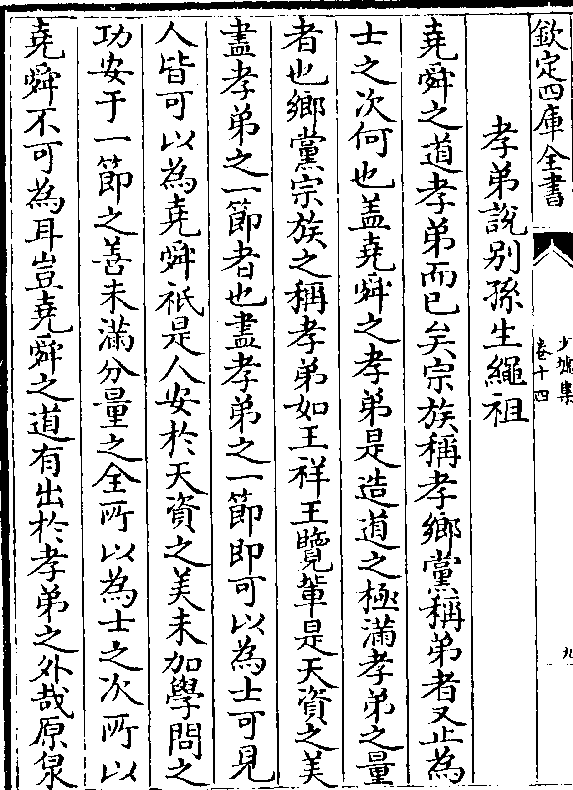 欽定四庫全書
少墟集
卷十四
九
孝弟説别孫生繩祖
堯舜之道孝弟而已矣宗族稱孝鄉黨稱弟者又止為
士之次何也蓋堯舜之孝弟是造道之極滿孝弟之量
者也鄉黨宗族之稱孝弟如王祥王覽輩是天資之美
盡孝弟之一節者也盡孝弟之一節即可以為士可見
人皆可以為堯舜祇是人安於天資之美未加學問之
功安于一節之善未滿分量之全所以為士之次所以
堯舜不可為耳豈堯舜之道有出於孝弟之外哉原泉